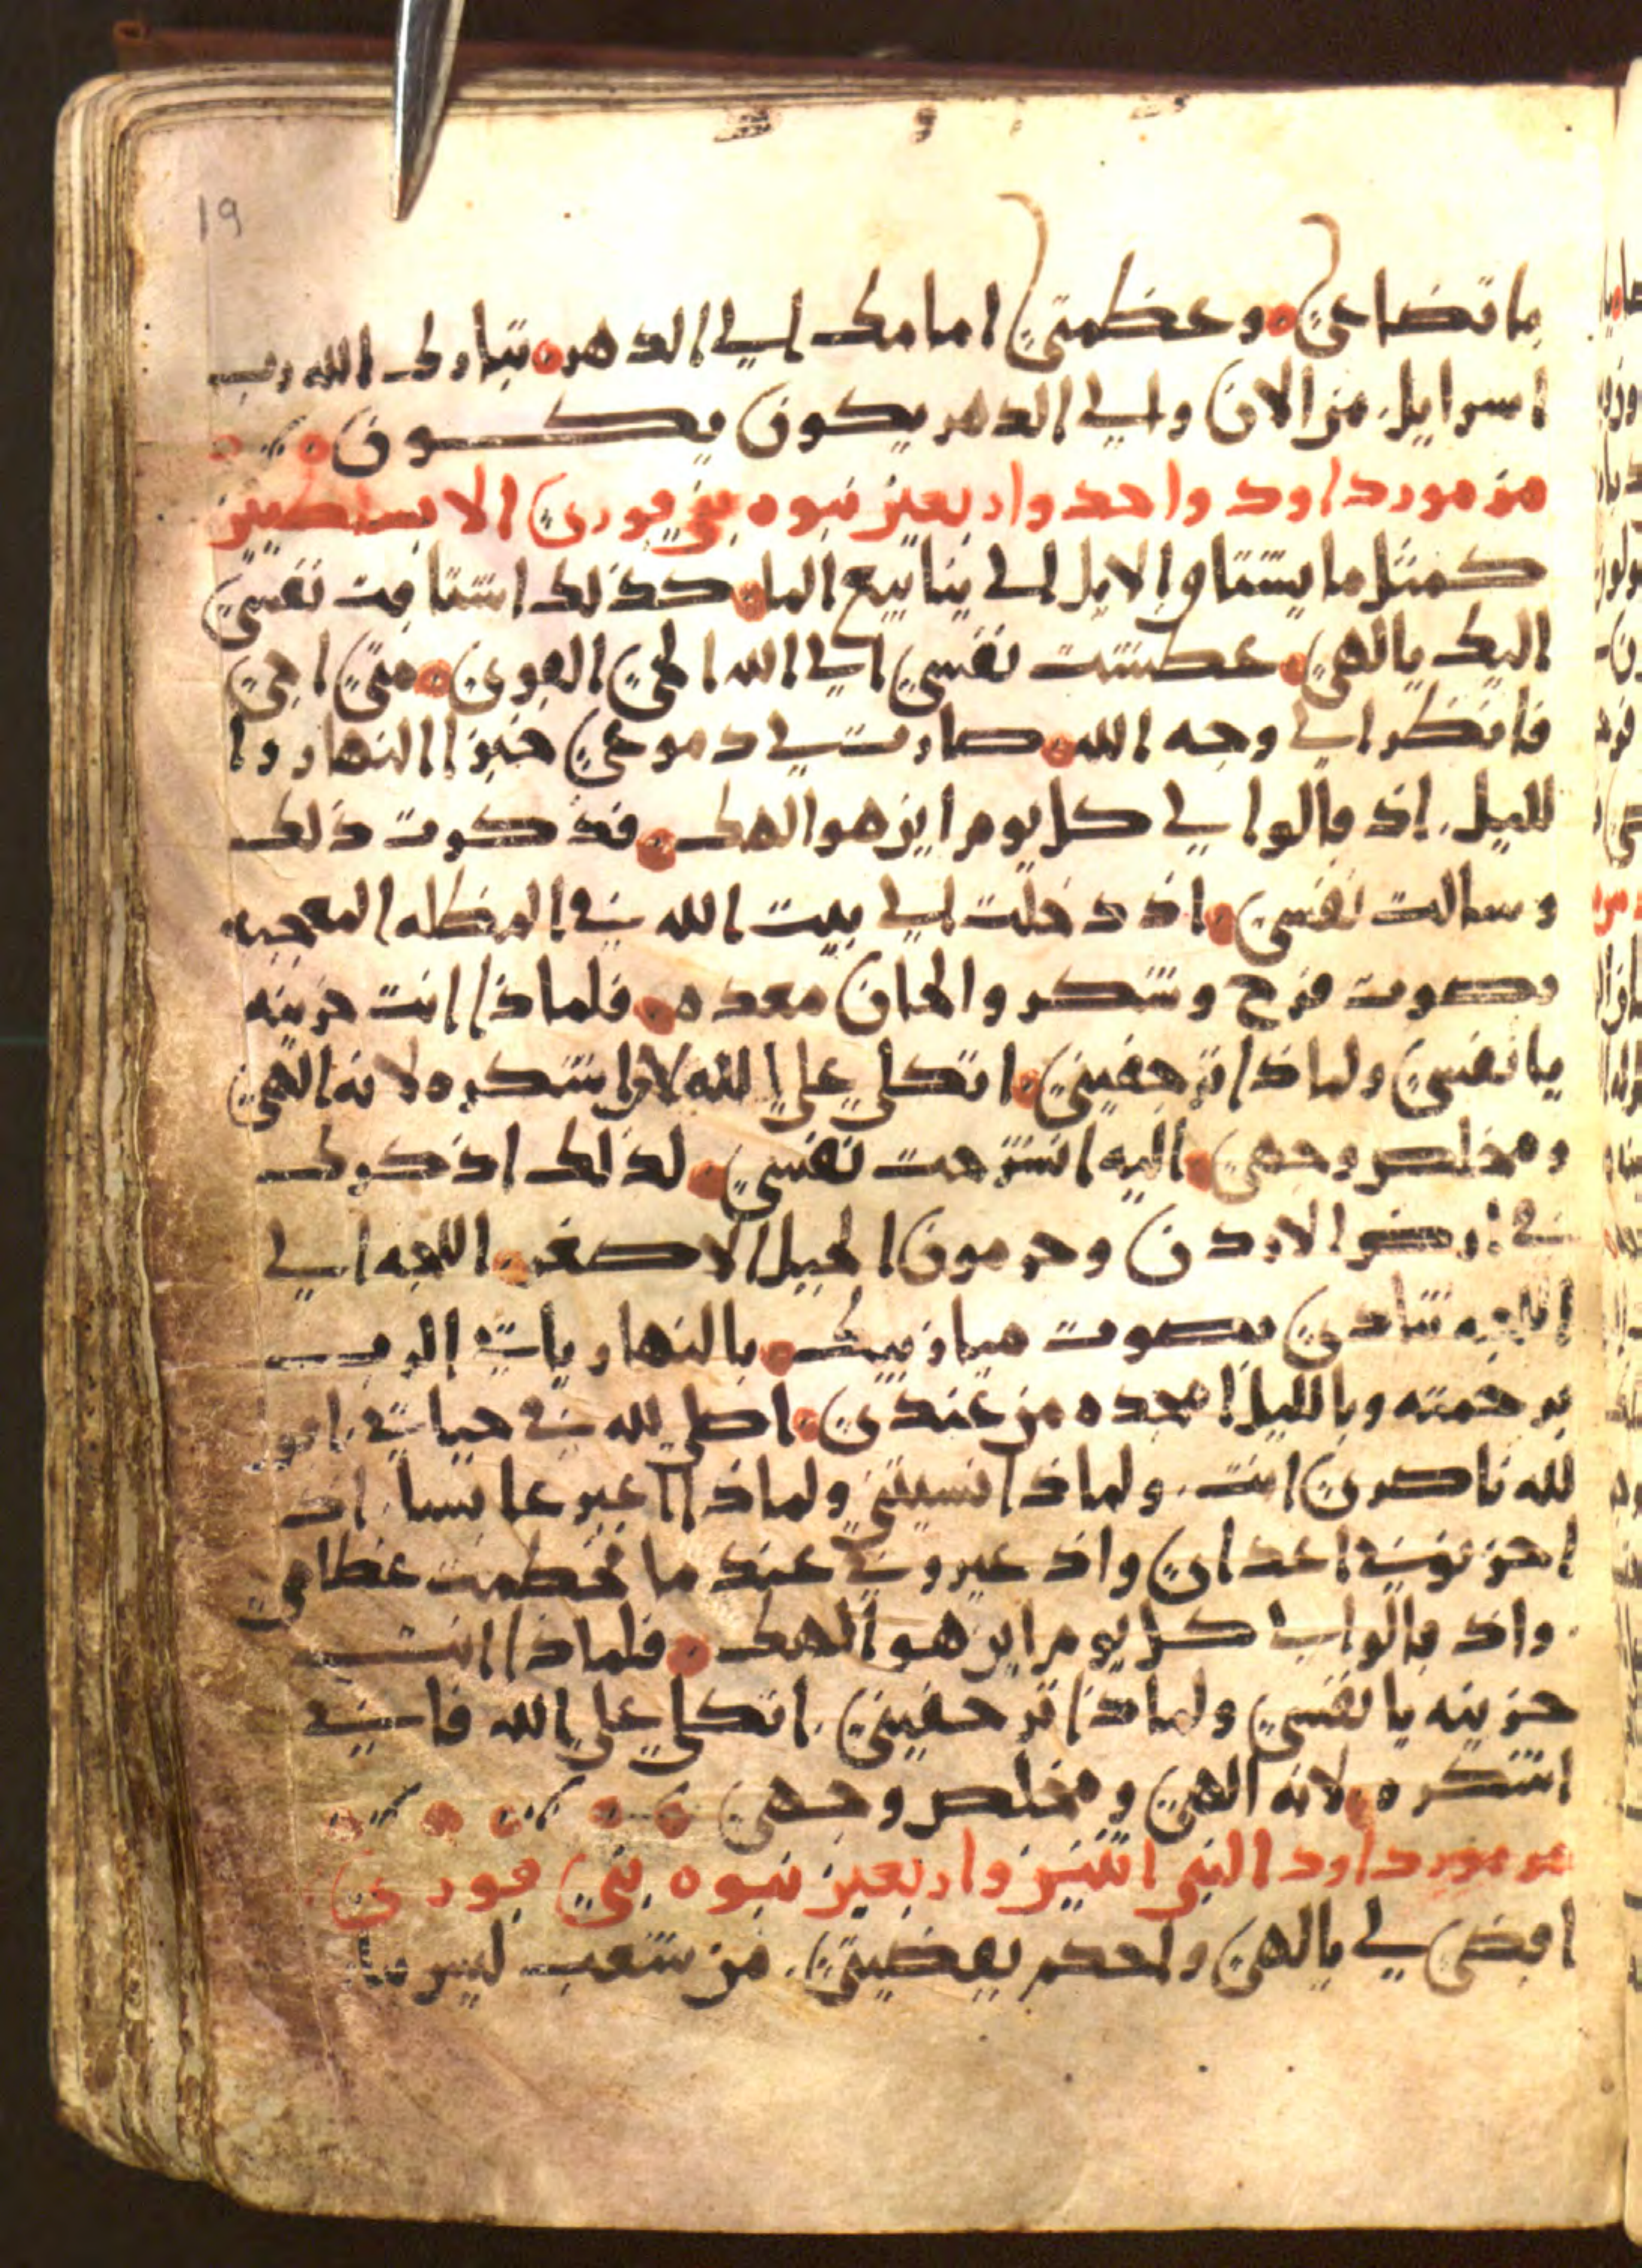 19
باتضاعي وعظمتي امامك الي الدهر تبارك الله رب
اسرايل من الان والي الدهر يكون يكون
مزمور داود واحد واربعين نبوه بني قوري الابسلطين
كمثل ما يشتاق الايل الي ينابيع الما كذلك اشتاقت نفسي
اليك يالهي عطشت نفسي الي الله الحي القوي متي اجي
فانظر الي وجه الله صارت لي دموعي خبزا النهار وا
لليل اذ قالوا لي كل يوم اين هو الهك فذكرت ذلك
وسالت نفسي اذ دخلت الي بيت الله في المظله المعجبه
بصوت فرح وشكر والحان معده فلماذا انت حزينه
يا نفسي ولماذا ترجفيني اتكلي علي الله لاني اشكره لانه الهي
ومخلص وجهي اليه انشرحت نفسي لذلك اذكرك
في ارض الاردن وحرمون الجبل الاصغر اللجه الي
اللجه تنادي بصوت ميازيبك بالنهار ياتي الرب
برحمته وبالليل امجده من عندي اصلي لله في حياتي
لله ناصري انت ولماذا نسيتني ولماذا اعبر عابسا اذ
احزنوني اعداي واذ عيروني عند ما تحطمت عظامي
واذ قالوا لي كل يوم اين هو الهك فلماذا انت
حزينه يا نفسي ولماذا ترجفيني اتكلي علي الله فاني
اشكره لانه الهي ومخلص وجهي
مزمور داود النبي اثنين واربعين نبوه بني قوري
اقضي لي يالهي واحكم بقضيتي من شعب ليس